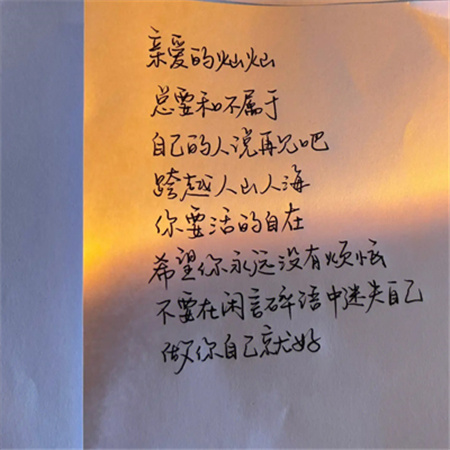 亲爱的灿灿
总要和不属于
自己的人说再见吧
跨越人山人海
你要活的自在
希望你永远没有烦恼
不要在闲言碎语中迷失自己
做你自己就好